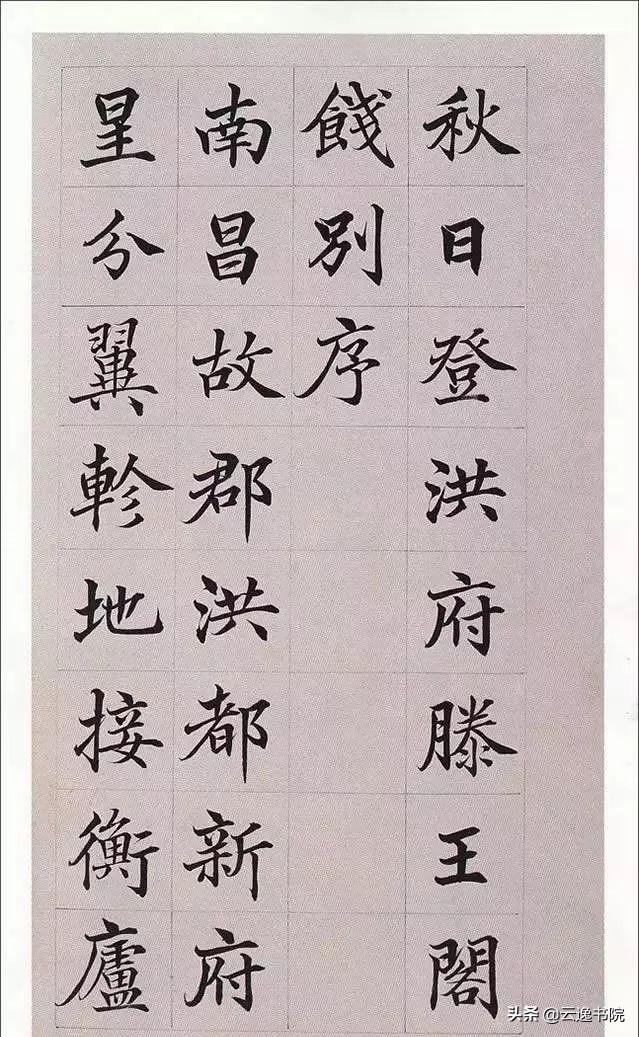 秋日登洪府滕王閣
餞別序
南昌故郡洪都新府
星分翼軫地接衡廬
头条 @云逸书院